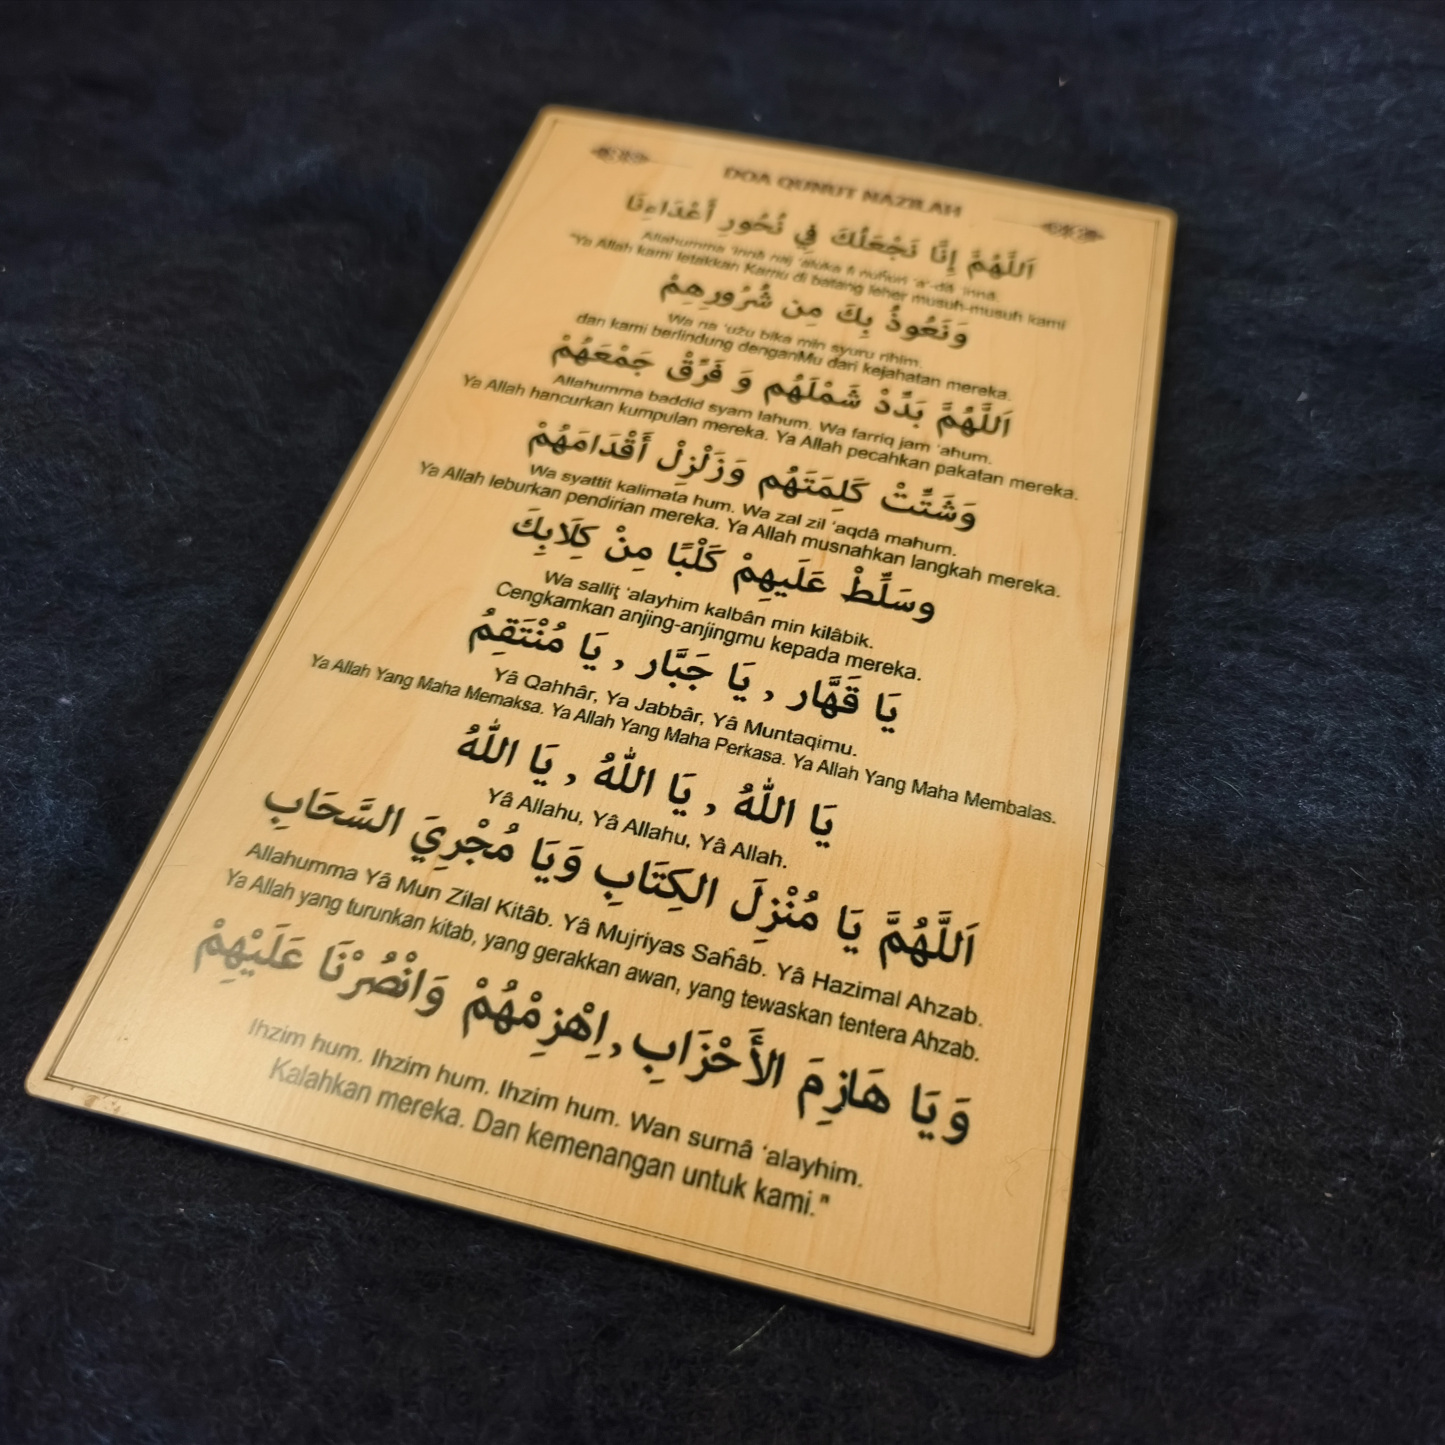 DOA QUNUT NAZILAH
اَللَّهُمَّ إِنَّا نَجْعَلُكَ فِي نُحُورِ أَعْدَاءِنَا
Allahumma 'innâ naj 'aluka fi nuĥuri 'a'-dâ 'innâ.
"Ya Allah kami letakkan Kamu di batang leher musuh-musuh kami
وَنَعُوذُ بِكَ مِن شُرُورِهِمْ
Wa na 'uzu bika min syuru rihim.
dan kami berlindung denganMu dari kejahatan mereka.
اَللَّهُمَّ بَدِّدْ شَمْلَهُم وَ فَرِّقْ جَمْعَهُمْ
Allahumma baddid syam lahum. Wa farriq jam 'ahum.
Ya Allah hancurkan kumpulan mereka. Ya Allah pecahkan pakatan mereka.
وَشَتِّتْ كَلِمَتَهُم وَزَلْزِلْ أَقْدَامَهُمْ
Wa syattit kalimata hum. Wa zal zil 'aqdâ mahum.
Ya Allah leburkan pendirian mereka. Ya Allah musnahkan langkah mereka.
وسَلِّطْ عَلَيهِمْ كَلْبًا مِنْ كِلَابِكَ
Wa salliţ 'alayhim kalbân min kilâbik.
Cengkamkan anjing-anjingmu kepada mereka.
يَا قَهَّار , يَا جَبَّار , يَا مُنْتَقِمُ
Yâ Qahhâr, Ya Jabbâr, Yâ Muntaqimu.
Ya Allah Yang Maha Memaksa. Ya Allah Yang Maha Perkasa. Ya Allah Yang Maha Membalas.
يَا اللهُ , يَا اللهُ , يَا اللهُ
Yâ Allahu, Yâ Allahu, Yâ Allah.
اَللَّهُمَّ يَا مُنْزِلَ الكِتَابِ وَيَا مُجْرِيَ السَّحَابِ
Allahumma Yâ Mun Zilal Kitâb. Yâ Mujriyas Saĥâb. Yâ Hazimal Ahzab.
Ya Allah yang turunkan kitab, yang gerakkan awan, yang tewaskan tentera Ahzab.
وَيَا هَازِمَ الأَحْزَابِ ,اِهْزِمْهُمْ وَانْصُرْنَا عَلَيْهِمْ
Ihzim hum. Ihzim hum. Ihzim hum. Wan surnâ 'alayhim.
Kalahkan mereka. Dan kemenangan untuk kami."